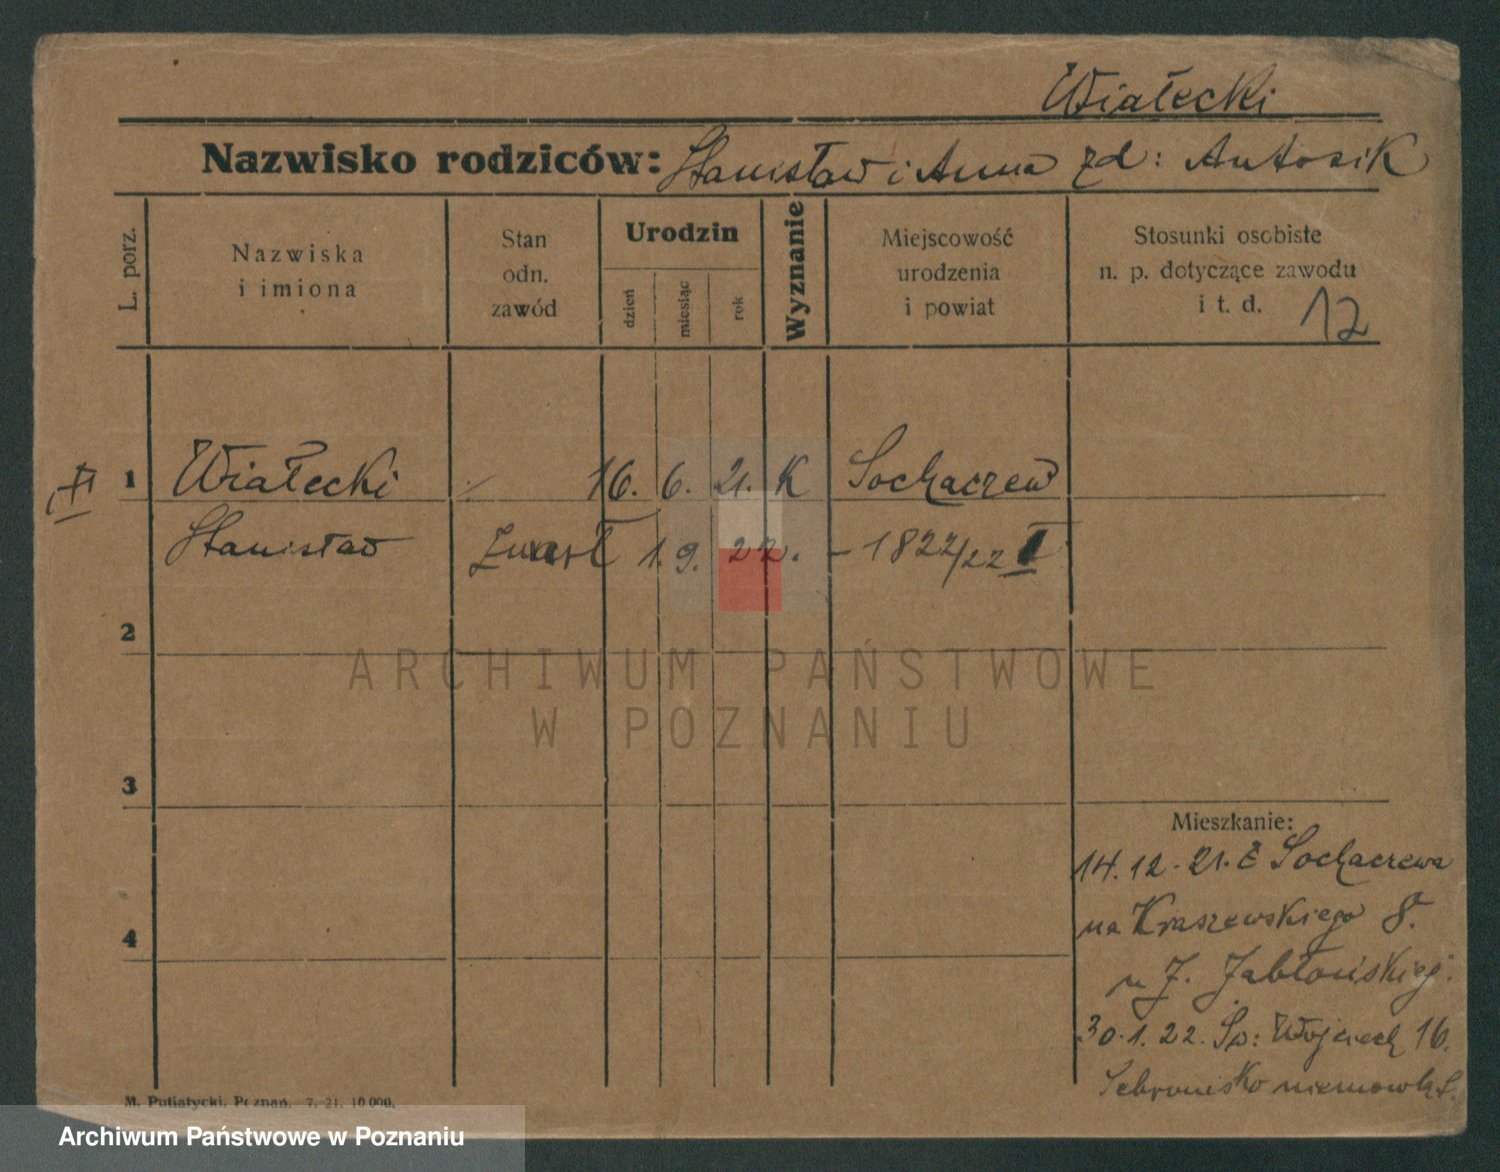 Wiałecki
Nazwisko rodziców: Stanisław i Anna zd: Antosik
L. porz.
Nazwiska
i imiona
Stan
odn.
zawód
Urodzin
dzień
miesiąc
rok
Wyznanie
Miejscowość
urodzenia
i powiat
Stosunki osobiste
n. p. dotyczące zawodu
i t. d.
12
1 Wiałecki 16. 6. 21. K Sochaczew
Stanisław zmarł 1. 9. 22. – 1822/22 I
2
3
4
Mieszkanie:
14.12.21. z Sochaczewa
na Kraszewskiego 8.
u J. Jabłońskiej.
30.1.22. Św: Wojciech 16.
Schronisko niemowląt.
M. Putiatycki, Poznań. 7. 21. 10 000.
ARCHIWUM PAŃSTWOWE
W POZNANIU
Archiwum Państwowe w Poznaniu